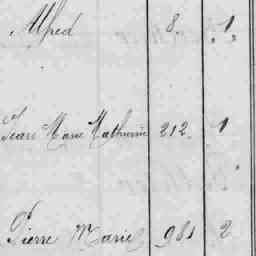 Alfred 8. 1
Jean Marie Mathurin 212. 1
Pierre Marie 981 2